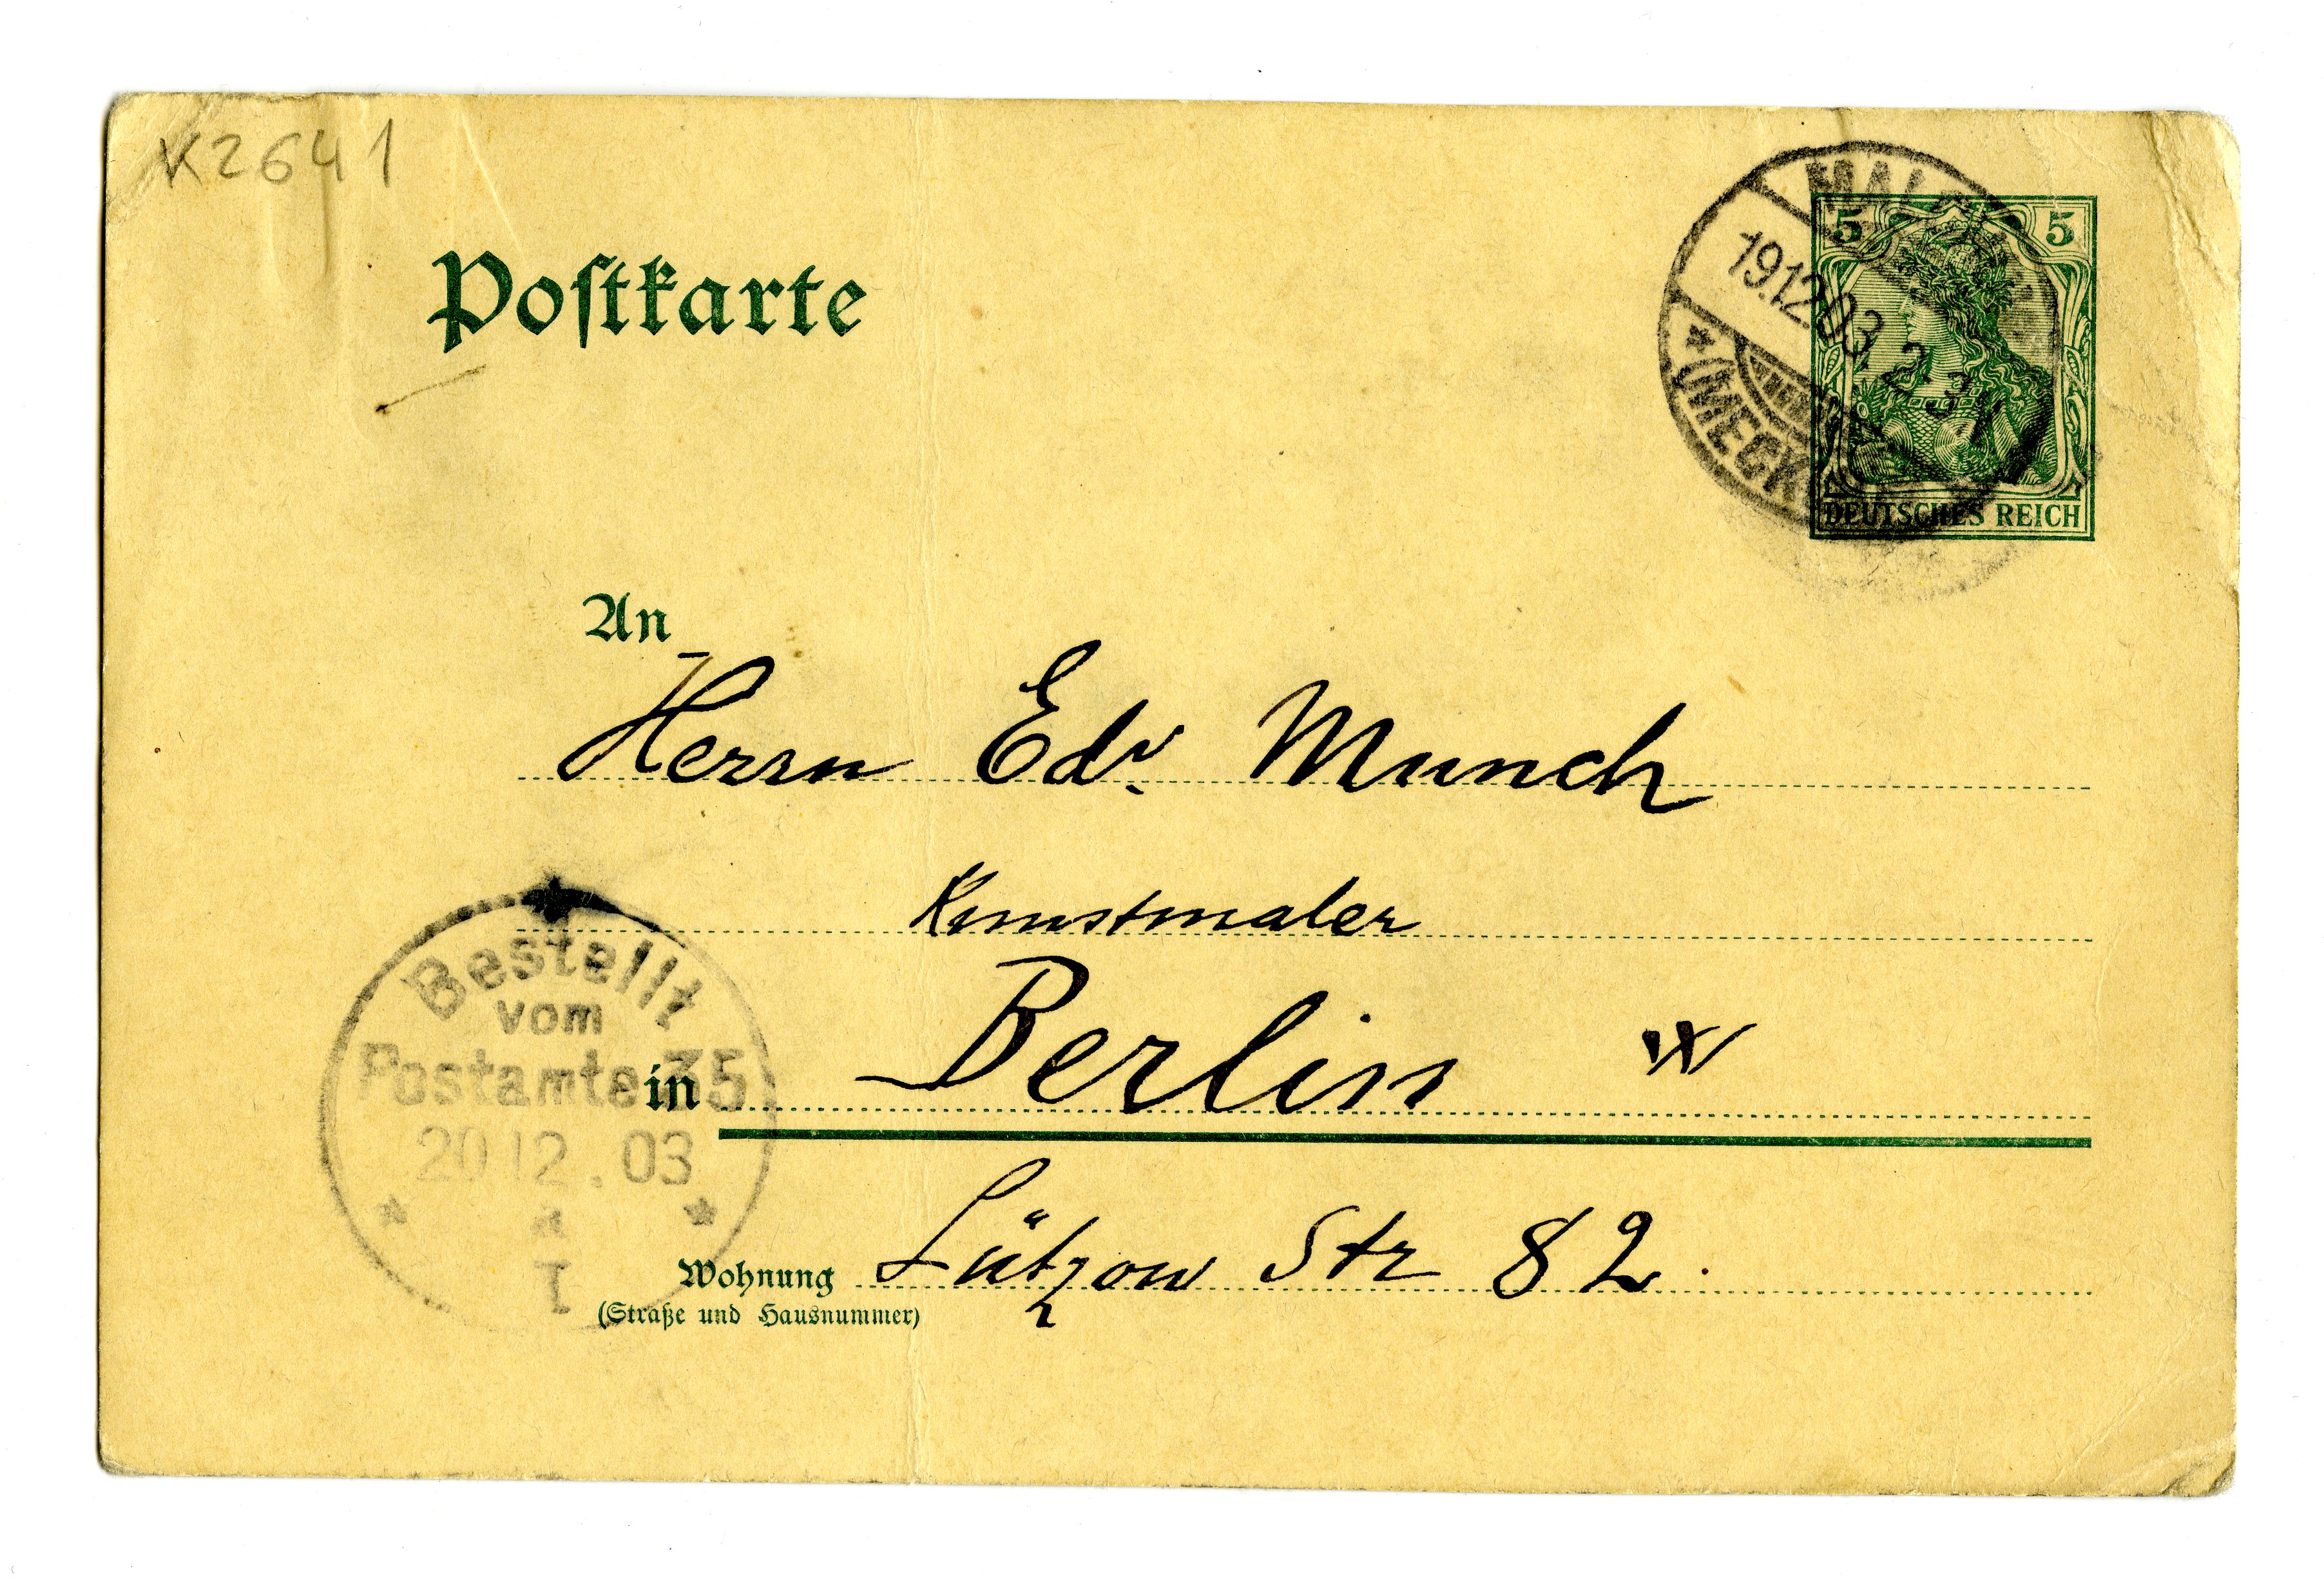 K2641
Postkarte
19.12.03. 2-3 N
* (MECKL
5 5
DEUTSCHES REICH
An
Herrn Edv. Munch
Kunstmaler
in Berlin W
Wohnung Lützow Str 82.
(Straße und Hausnummer)
Bestellt
vom
Postamte 35
20 12. 03
1